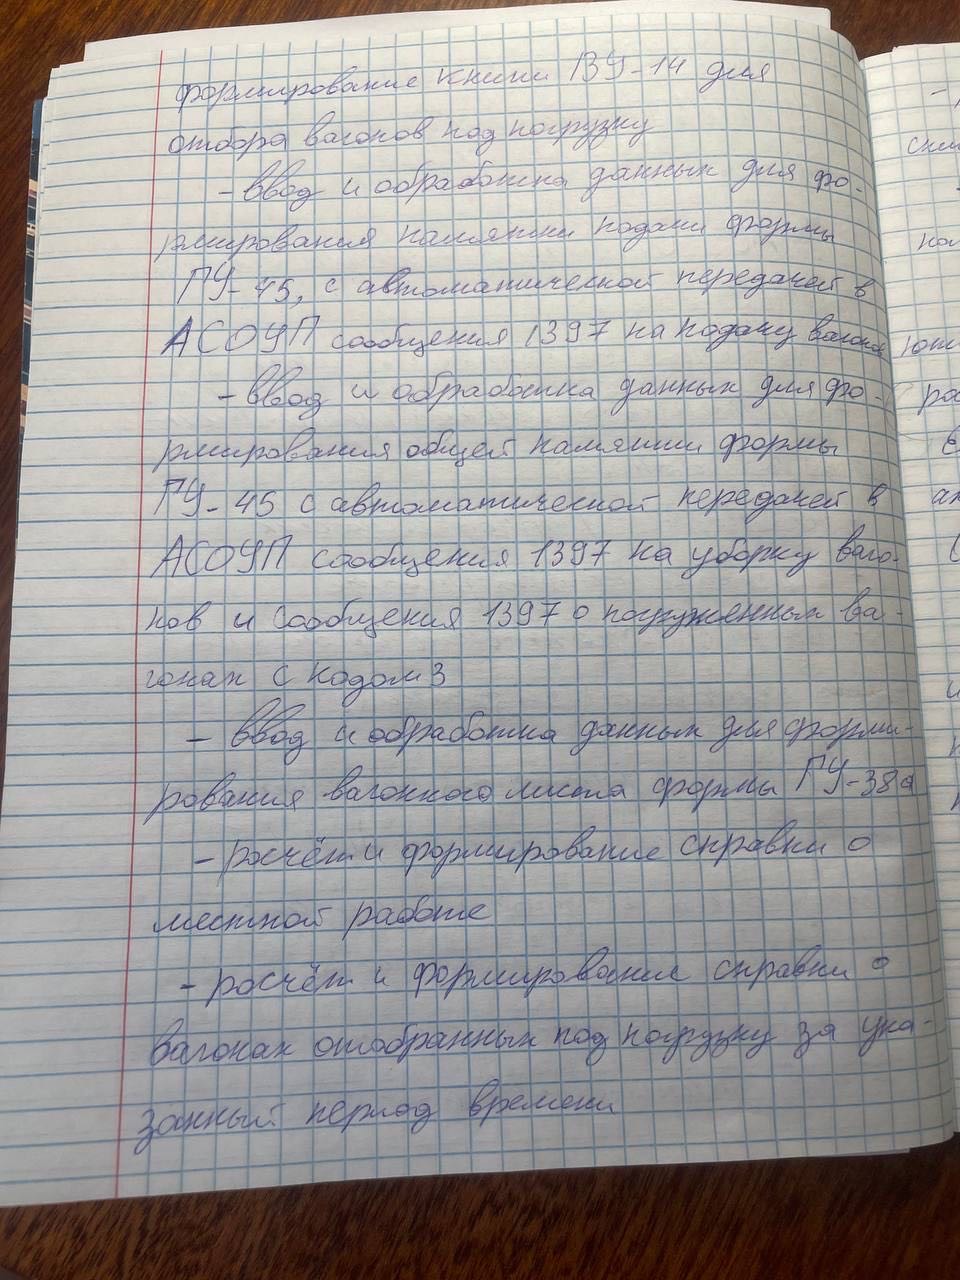 формирование книги ВУ-14 для
отбора вагонов под погрузку
- ввод и обработка данных для фо-
рмирования памятки подачи формы
ГУ-45, с автоматической передачей в
АСОУП сообщения 1397 на подачу вагонов
- ввод и обработка данных для фо-
рмирования общей памятки формы
ГУ-45 с автоматической передачей в
АСОУП сообщения 1397 на уборку ваго-
нов и сообщения 1397 о погруженных ва-
гонах с кодом 3
- ввод и обработка данных для форми-
рования вагонного листа формы ГУ-38а
- расчёт и формирование справки о
местной работе
- расчёт и формирование справки о
вагонах отобранных под погрузку за ука-
занный период времени